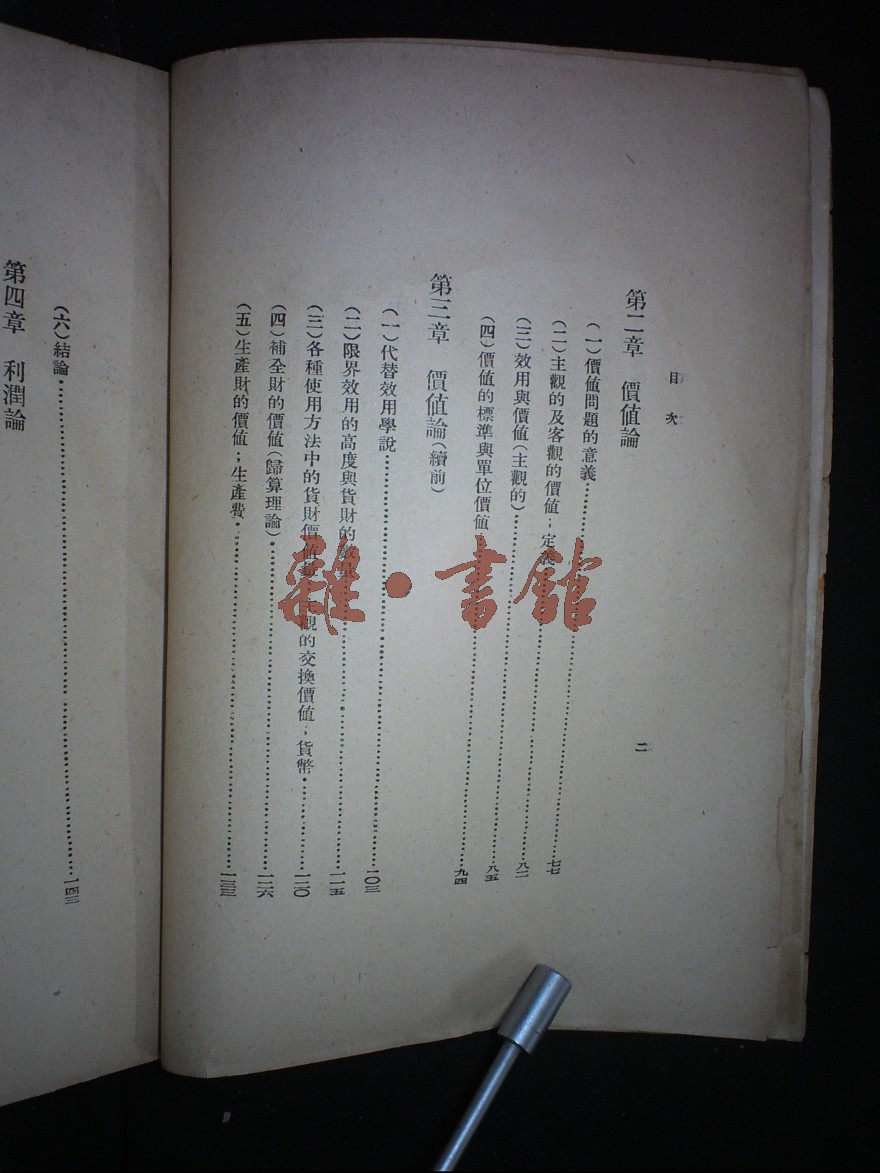 目次
二
第二章 價值論
(一)價值問題的意義……七七
(二)主觀的及客觀的價值;定義……八二
(三)效用與價值(主觀的)……八五
(四)價值的標準與單位價值……九四
第三章 價值論(續前)
(一)代替效用學說……一〇三
(二)限界效用的高度與貨財的數量……一一五
(三)各種使用方法中的貨財價值 觀的交換價值;貨幣……一二〇
(四)補全財的價值(歸算理論)……一二六
(五)生產財的價值;生產費……一三三
(六)結論……一四三
第四章 利潤論
雜·書館